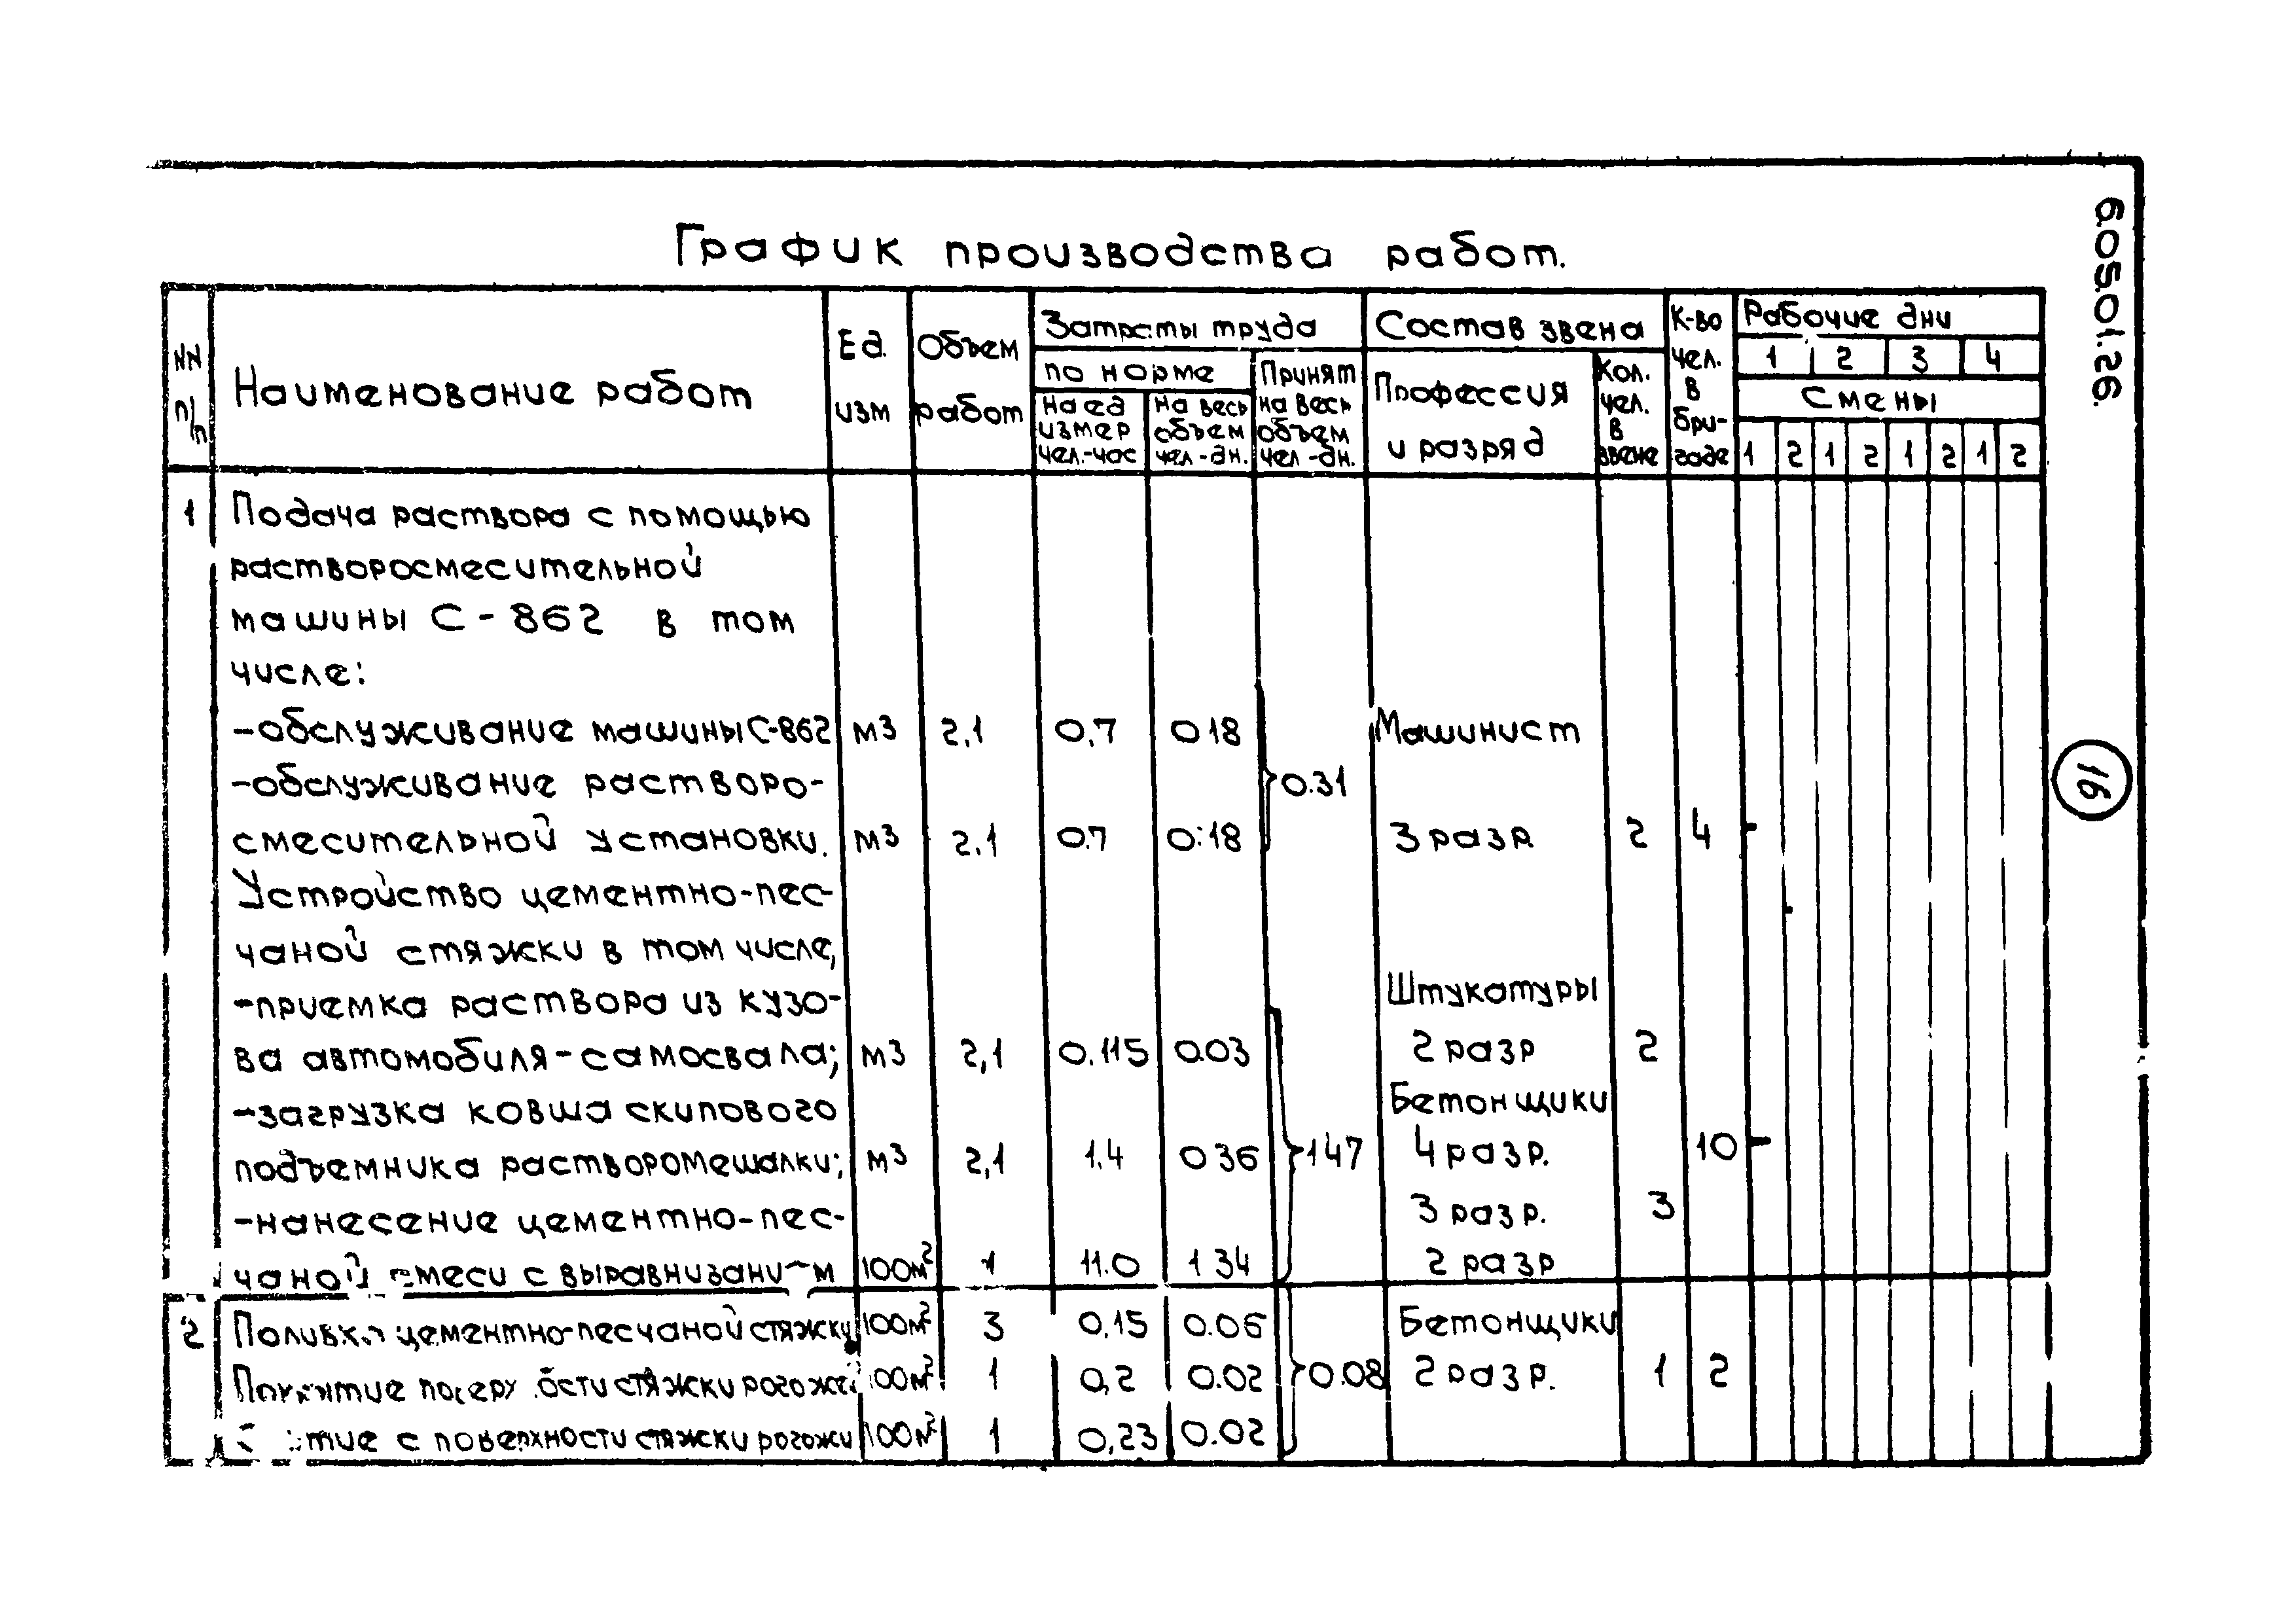 График производства работ.
6.05.01.26.
NN п/п
Наименование работ
Ед. изм
Объем работ
Затраты труда
по норме
на ед измер чел.-час
на весь объем чел-дн.
Принят на весь объем чел-дн.
Состав звена
Профессия и разряд
Кол. чел. в звене
К-во чел. в бригаде
Рабочие дни
1 2 3 4
Смены
1 2 1 2 1 2 1 2
1 Подача раствора с помощью
растворосмесительной
машины С-862 в том
числе:
-обслуживание машины С-862 м3 2,1 0,7 0 18 Машинист
-обслуживание растворо- 0.31
смесительной установки. м3 2.1 0.7 0.18 3 разр. 2 4
Устройство цементно-пес-
чаной стяжки в том числе,
-приемка раствора из кузо- Штукатуры
ва автомобиля-самосвала; м3 2,1 0.115 0.03 2 разр 2
-загрузка ковша скипового Бетонщики
подъемника растворомешалки; м3 2,1 1.4 0 36 1 47 4 разр. 10
-нанесение цементно-пес- 3 разр. 3
чаной смеси с 100м2 1 11.0 1 34 2 разр
2 цементно-песчаной стяжки 100м2 3 0,15 0.06 Бетонщики
стяжки 100м2 1 0,2 0.02 0.08 2 разр. 1 2
с поверхности стяжки рогожи 100м2 1 0,23 0.02
16